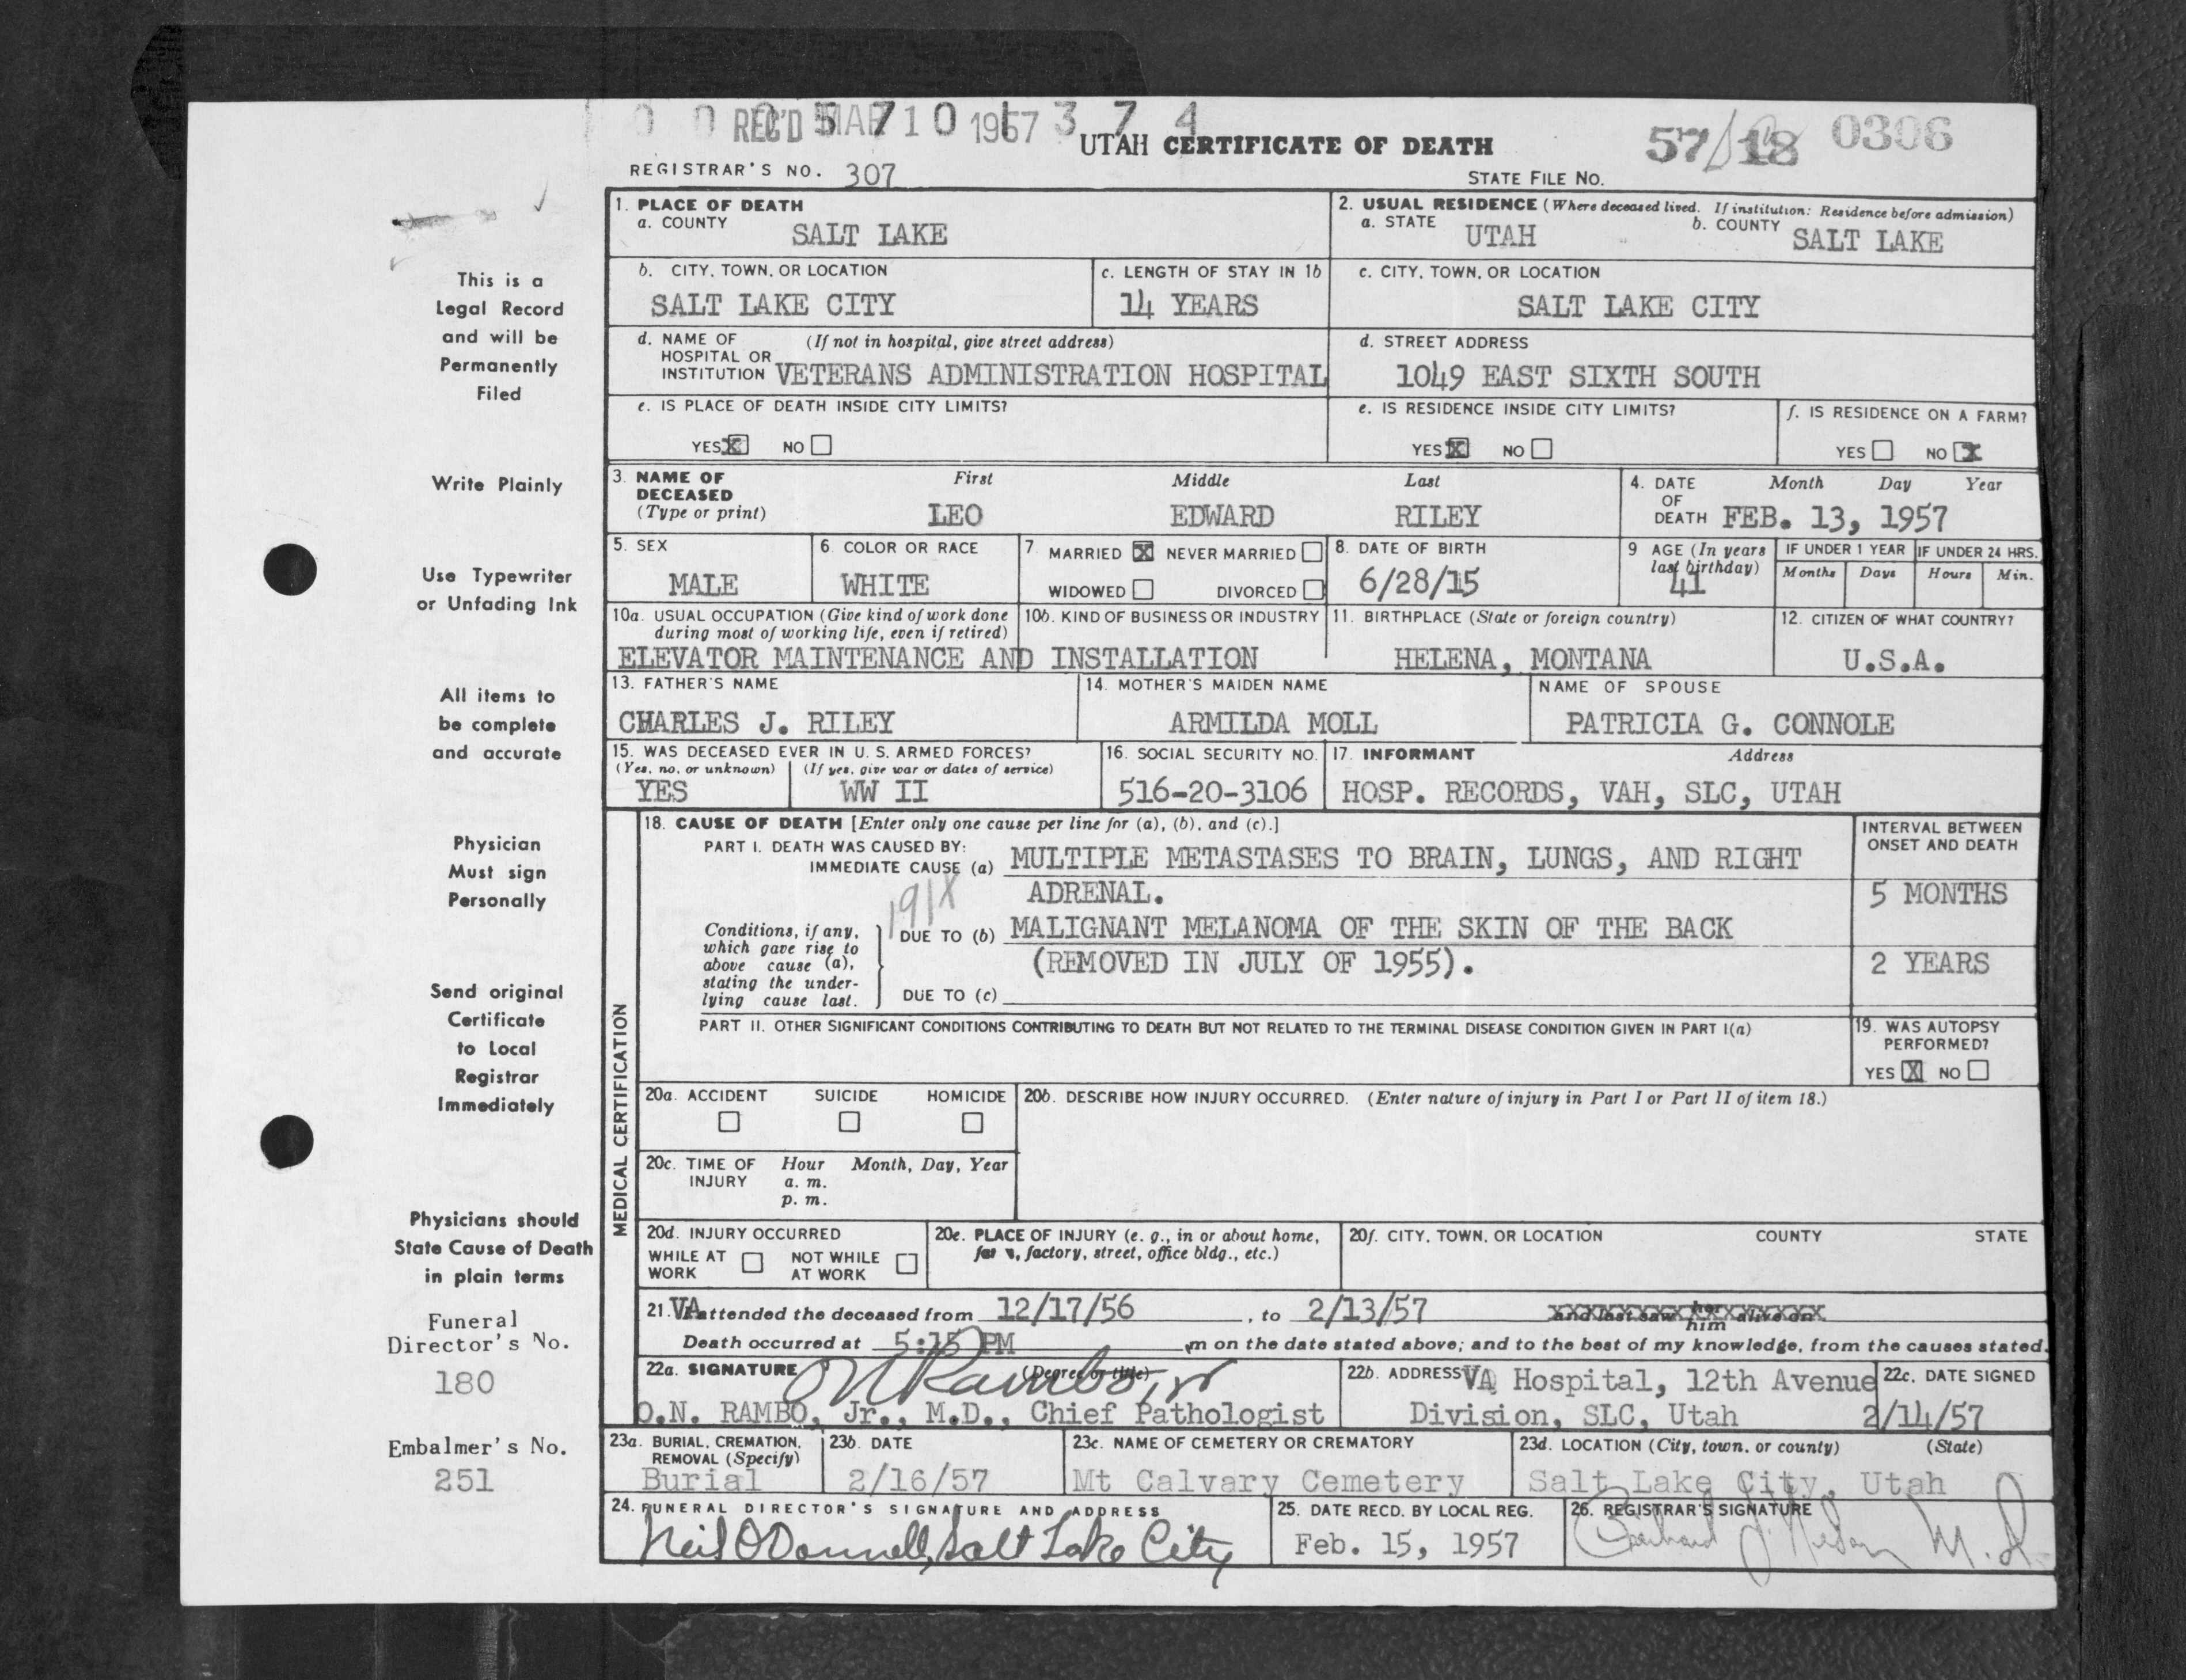 REC'D MAR 10 1957
0 0 0 5 7 0 1 3 7 4
UTAH CERTIFICATE OF DEATH
57 18 0306
REGISTRAR'S NO. 307
STATE FILE NO.
This is a
Legal Record
and will be
Permanently
Filed
Write Plainly
Use Typewriter
or Unfading Ink
All items to
be complete
and accurate
Physician
Must sign
Personally
Send original
Certificate
to Local
Registrar
Immediately
Physicians should
State Cause of Death
in plain terms
Funeral
Director's No.
180
Embalmer's No.
251
1. PLACE OF DEATH
a. COUNTY SALT LAKE
2. USUAL RESIDENCE (Where deceased lived. If institution: Residence before admission)
a. STATE UTAH b. COUNTY SALT LAKE
b. CITY, TOWN, OR LOCATION
SALT LAKE CITY
c. LENGTH OF STAY IN 1b
14 YEARS
c. CITY, TOWN, OR LOCATION
SALT LAKE CITY
d. NAME OF (If not in hospital, give street address)
HOSPITAL OR
INSTITUTION VETERANS ADMINISTRATION HOSPITAL
d. STREET ADDRESS
1049 EAST SIXTH SOUTH
e. IS PLACE OF DEATH INSIDE CITY LIMITS?
YES X NO
e. IS RESIDENCE INSIDE CITY LIMITS?
YES X NO
f. IS RESIDENCE ON A FARM?
YES NO X
3. NAME OF First Middle Last
DECEASED
(Type or print) LEO EDWARD RILEY
4. DATE Month Day Year
OF
DEATH FEB. 13, 1957
5. SEX
MALE
6. COLOR OR RACE
WHITE
7. MARRIED X NEVER MARRIED
WIDOWED DIVORCED
8. DATE OF BIRTH
6/28/15
9 AGE (In years
last birthday)
41
IF UNDER 1 YEAR
Months Days
IF UNDER 24 HRS.
Hours Min.
10a. USUAL OCCUPATION (Give kind of work done
during most of working life, even if retired)
10b. KIND OF BUSINESS OR INDUSTRY
ELEVATOR MAINTENANCE AND INSTALLATION
11. BIRTHPLACE (State or foreign country)
HELENA, MONTANA
12. CITIZEN OF WHAT COUNTRY?
U.S.A.
13. FATHER'S NAME
CHARLES J. RILEY
14. MOTHER'S MAIDEN NAME
ARMILDA MOLL
NAME OF SPOUSE
PATRICIA G. CONNOLE
15. WAS DECEASED EVER IN U. S. ARMED FORCES?
(Yes, no, or unknown) (If yes, give war or dates of service)
YES WW II
16. SOCIAL SECURITY NO.
516-20-3106
17. INFORMANT Address
HOSP. RECORDS, VAH, SLC, UTAH
MEDICAL CERTIFICATION
18. CAUSE OF DEATH [Enter only one cause per line for (a), (b), and (c).]
INTERVAL BETWEEN
ONSET AND DEATH
PART I. DEATH WAS CAUSED BY:
IMMEDIATE CAUSE (a) MULTIPLE METASTASES TO BRAIN, LUNGS, AND RIGHT
ADRENAL. 5 MONTHS
191X
Conditions, if any,
which gave rise to
above cause (a),
stating the under-
lying cause last.
DUE TO (b) MALIGNANT MELANOMA OF THE SKIN OF THE BACK
(REMOVED IN JULY OF 1955). 2 YEARS
DUE TO (c)
PART II. OTHER SIGNIFICANT CONDITIONS CONTRIBUTING TO DEATH BUT NOT RELATED TO THE TERMINAL DISEASE CONDITION GIVEN IN PART I(a)
19. WAS AUTOPSY
PERFORMED?
YES X NO
20a. ACCIDENT SUICIDE HOMICIDE
20b. DESCRIBE HOW INJURY OCCURRED. (Enter nature of injury in Part I or Part II of item 18.)
20c. TIME OF Hour Month, Day, Year
INJURY a. m.
p. m.
20d. INJURY OCCURRED
WHILE AT NOT WHILE
WORK AT WORK
20e. PLACE OF INJURY (e. g., in or about home,
farm, factory, street, office bldg., etc.)
20f. CITY, TOWN, OR LOCATION COUNTY STATE
21. VA attended the deceased from 12/17/56, to 2/13/57 and last saw her him alive on
Death occurred at 5:15 PM m on the date stated above; and to the best of my knowledge, from the causes stated.
22a. SIGNATURE (Degree or title)
ON Rambo, Jr
O.N. RAMBO, Jr., M.D., Chief Pathologist
22b. ADDRESS VA Hospital, 12th Avenue
Division, SLC, Utah
22c. DATE SIGNED
2/14/57
23a. BURIAL, CREMATION,
REMOVAL (Specify)
Burial
23b. DATE
2/16/57
23c. NAME OF CEMETERY OR CREMATORY
Mt Calvary Cemetery
23d. LOCATION (City, town, or county) (State)
Salt Lake City, Utah
24. FUNERAL DIRECTOR'S SIGNATURE AND ADDRESS
Neil O'Donnell, Salt Lake City
25. DATE RECD. BY LOCAL REG.
Feb. 15, 1957
26. REGISTRAR'S SIGNATURE
M.D.